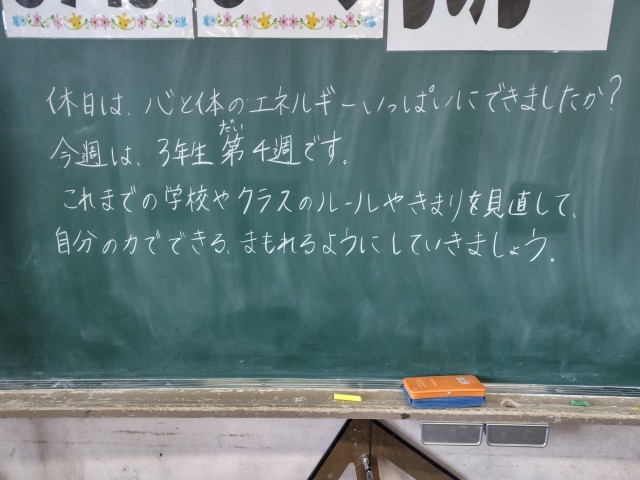 休日は、心と体のエネルギーいっぱいにできましたか?
だい
今週は、3年生 第4週です。
これまでの学校やクラスのルールやきまりを見直して、
自分の力でできる、まもれるようにしていきましょう。